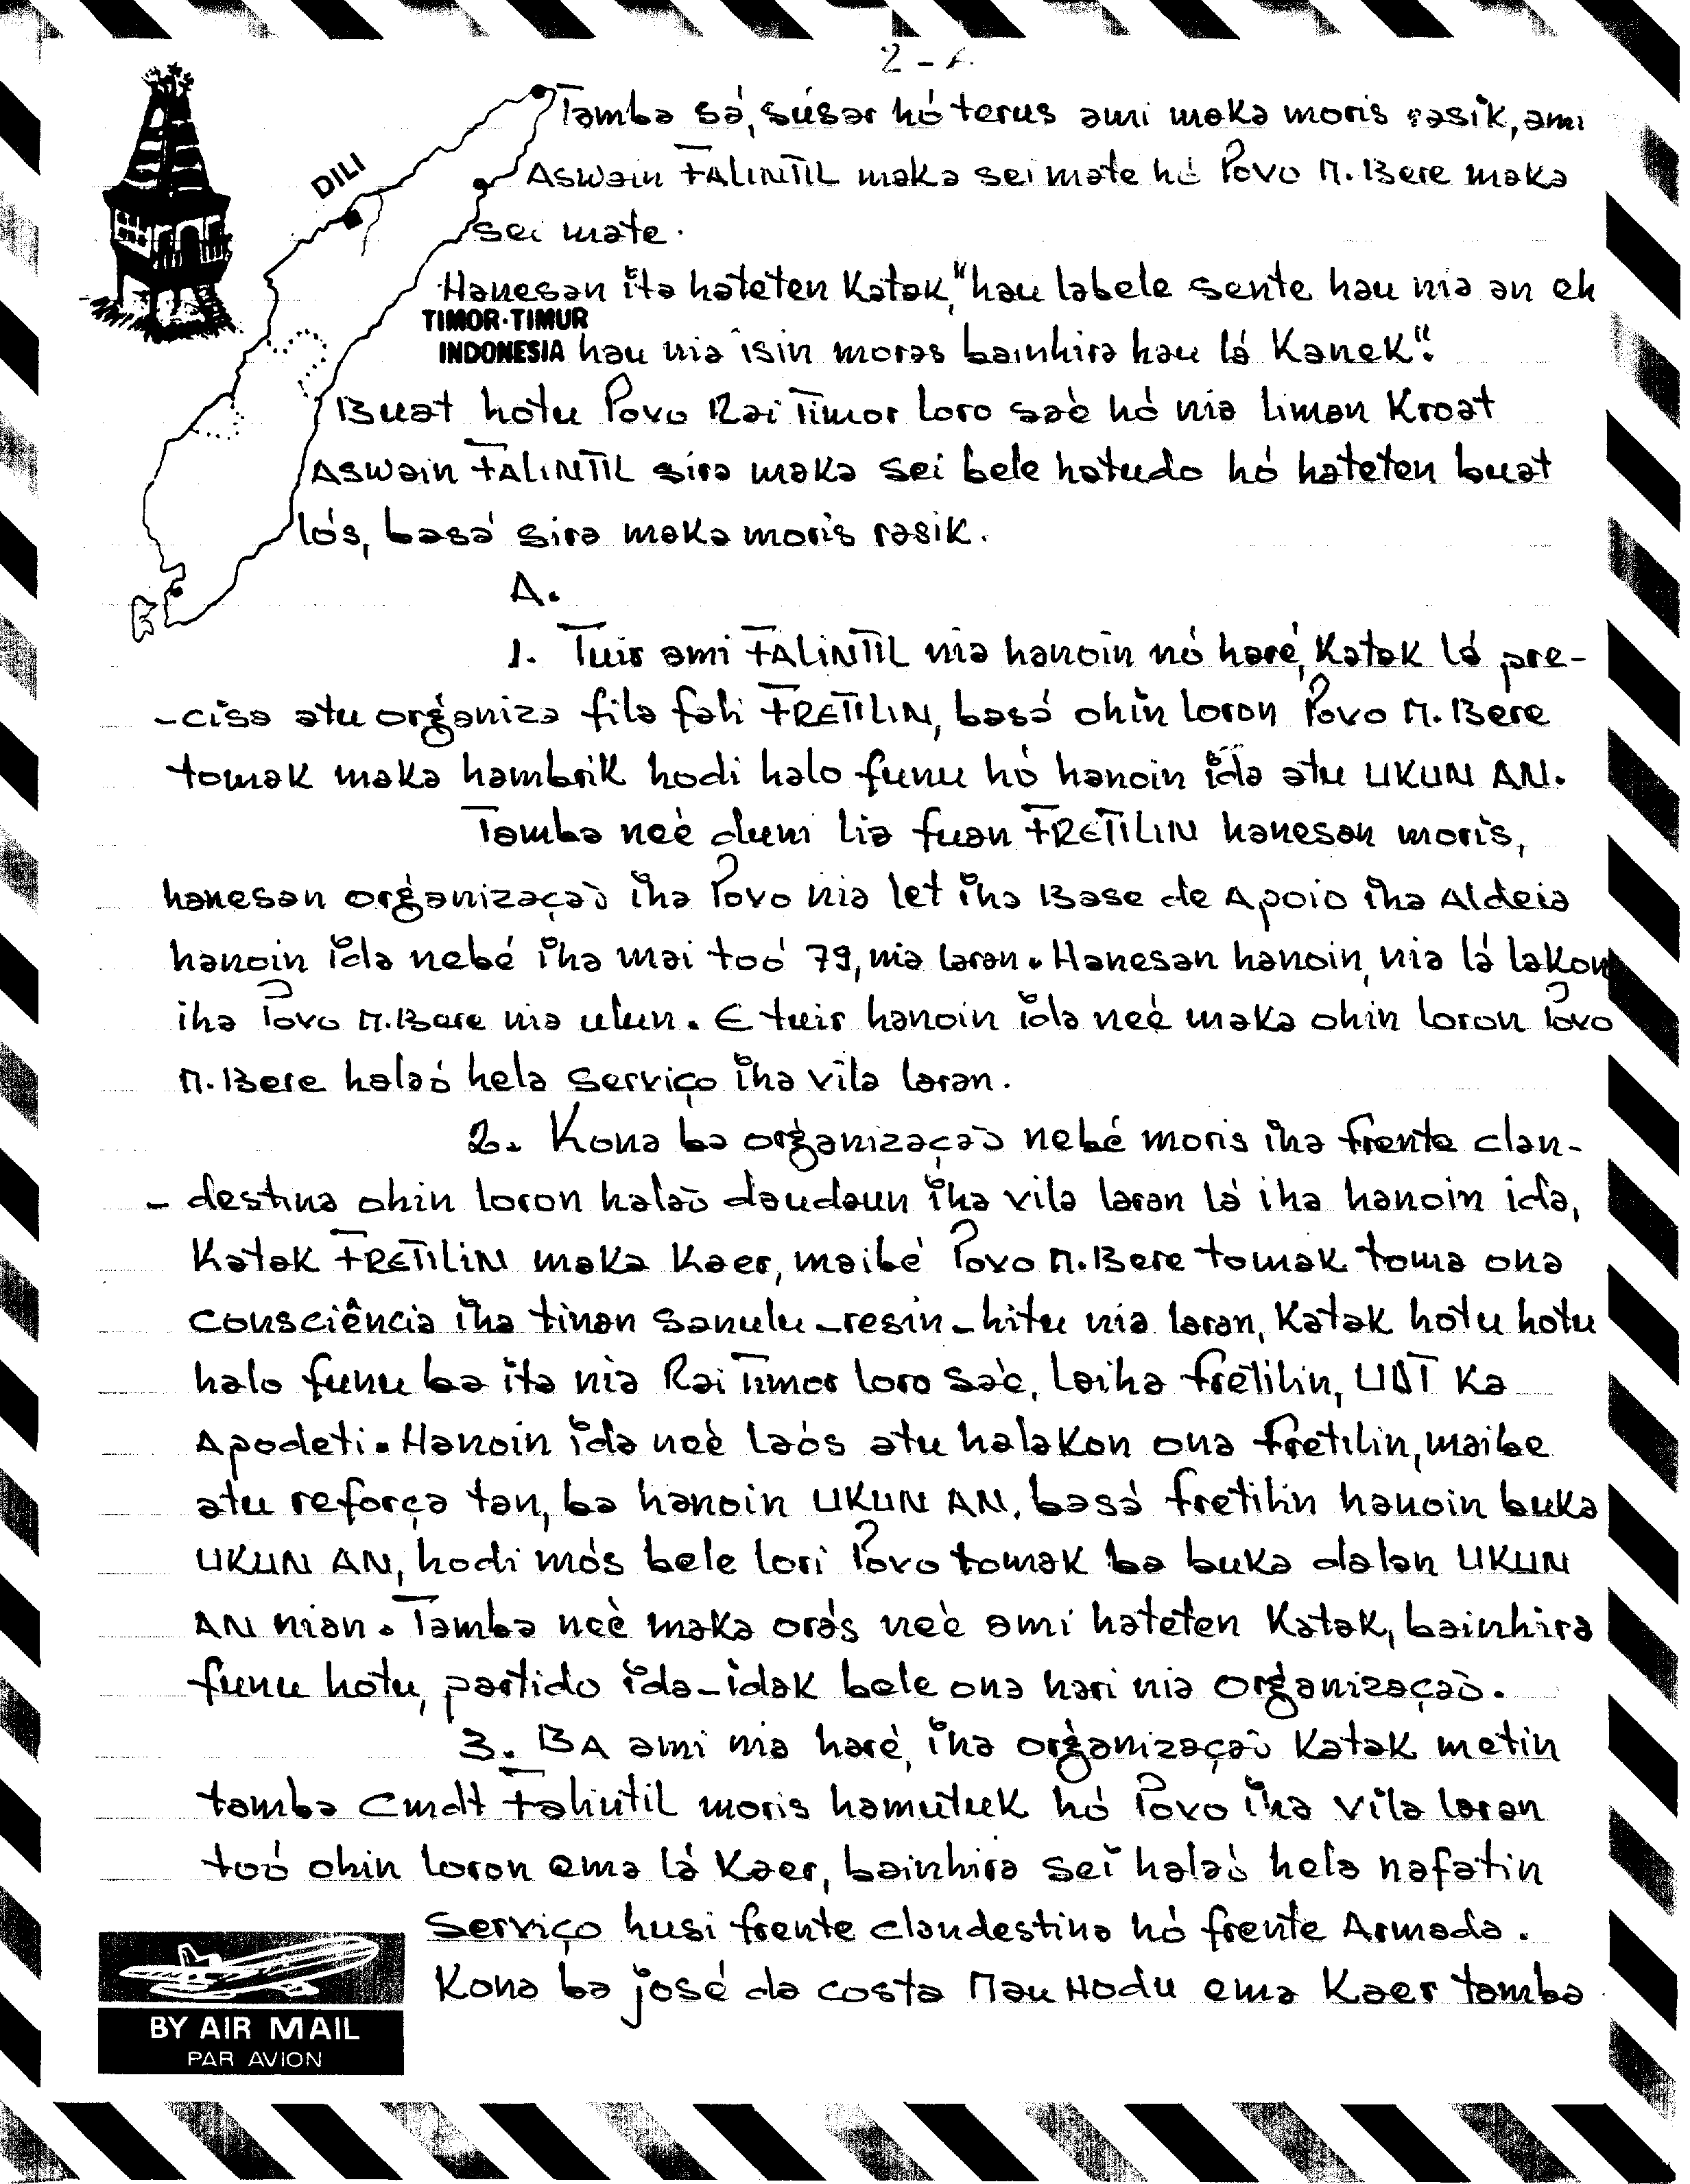 2-A
Tamba sá, súsar hó terus ami maka moris rasik, ami
DILI
Aswain FALINTIL maka sei mate hó Povo M. Bere maka
sei mate.
Hanesan ita hateten Katak, "hau labele sente hau nia an eh
TIMOR·TIMUR
INDONESIA hau nia isin moras bainhira hau lá Kanek".
Buat hotu Povo Rai Timor loro saè hó nia liman Kroat
Aswain FALINTIL sira maka sei bele hatudo hó hateten buat
lós, basá sira maka moris rasik.
A.
1. Tuir ami FALINTIL nia hanoin nó haré, Katak lá pre-
-cisa atu organiza fila fali FRETILIN, basá ohin loron Povo M. Bere
tomak maka hambrik hodi halo funu hó hanoin ida atu UKUN AN.
Tamba neè duni lia fuan FRETILIN hanesan moris,
hanesan organizaçaõ iha Povo nia let iha Base de Apoio iha Aldeia
hanoin ida nebé iha mai toó 79, nia laran. Hanesan hanoin, nia lá lakon
iha Povo M. Bere nia ulun. E tuir hanoin ida neè maka ohin loron Povo
M. Bere halaó hela Serviço iha vila laran.
2. Kona ba organizaçaõ nebé moris iha frente clan-
- destina ohin loron halaõ daudaun iha vila laran lá iha hanoin ida,
Katak FRETILIN maka Kaer, maibé Povo M. Bere tomak toma ona
consciência iha tinan Sanulu-resin-hitu nia laran, Katak hotu hotu
halo funu ba ita nia Rai Timor loro Saè, Laiha fretilin, UDT Ka
Apodeti. Hanoin ida neè laós atu halakon ona fretilin, maibe
atu reforça tan, ba hanoin UKUN AN, basá fretilin hanoin buka
UKUN AN, hodi mós bele lori Povo tomak ba buka dalan UKUN
AN nian. Tamba neè maka orás neè ami hateten Katak, bainhira
funu hotu, partido ida-idak bele ona hari nia organizaçaõ.
3. BA ami nia haré, iha organizaçaõ Katak metin
tamba Cmdt Falintil moris hamutuk hó Povo iha vila laran
toó ohin loron ema lá Kaer, bainhira sei halaó hela nafatin
Serviço husi frente clandestina hó frente Armada.
Kona ba josé da costa Mau Hodu ema Kaer tamba
BY AIR MAIL
PAR AVION